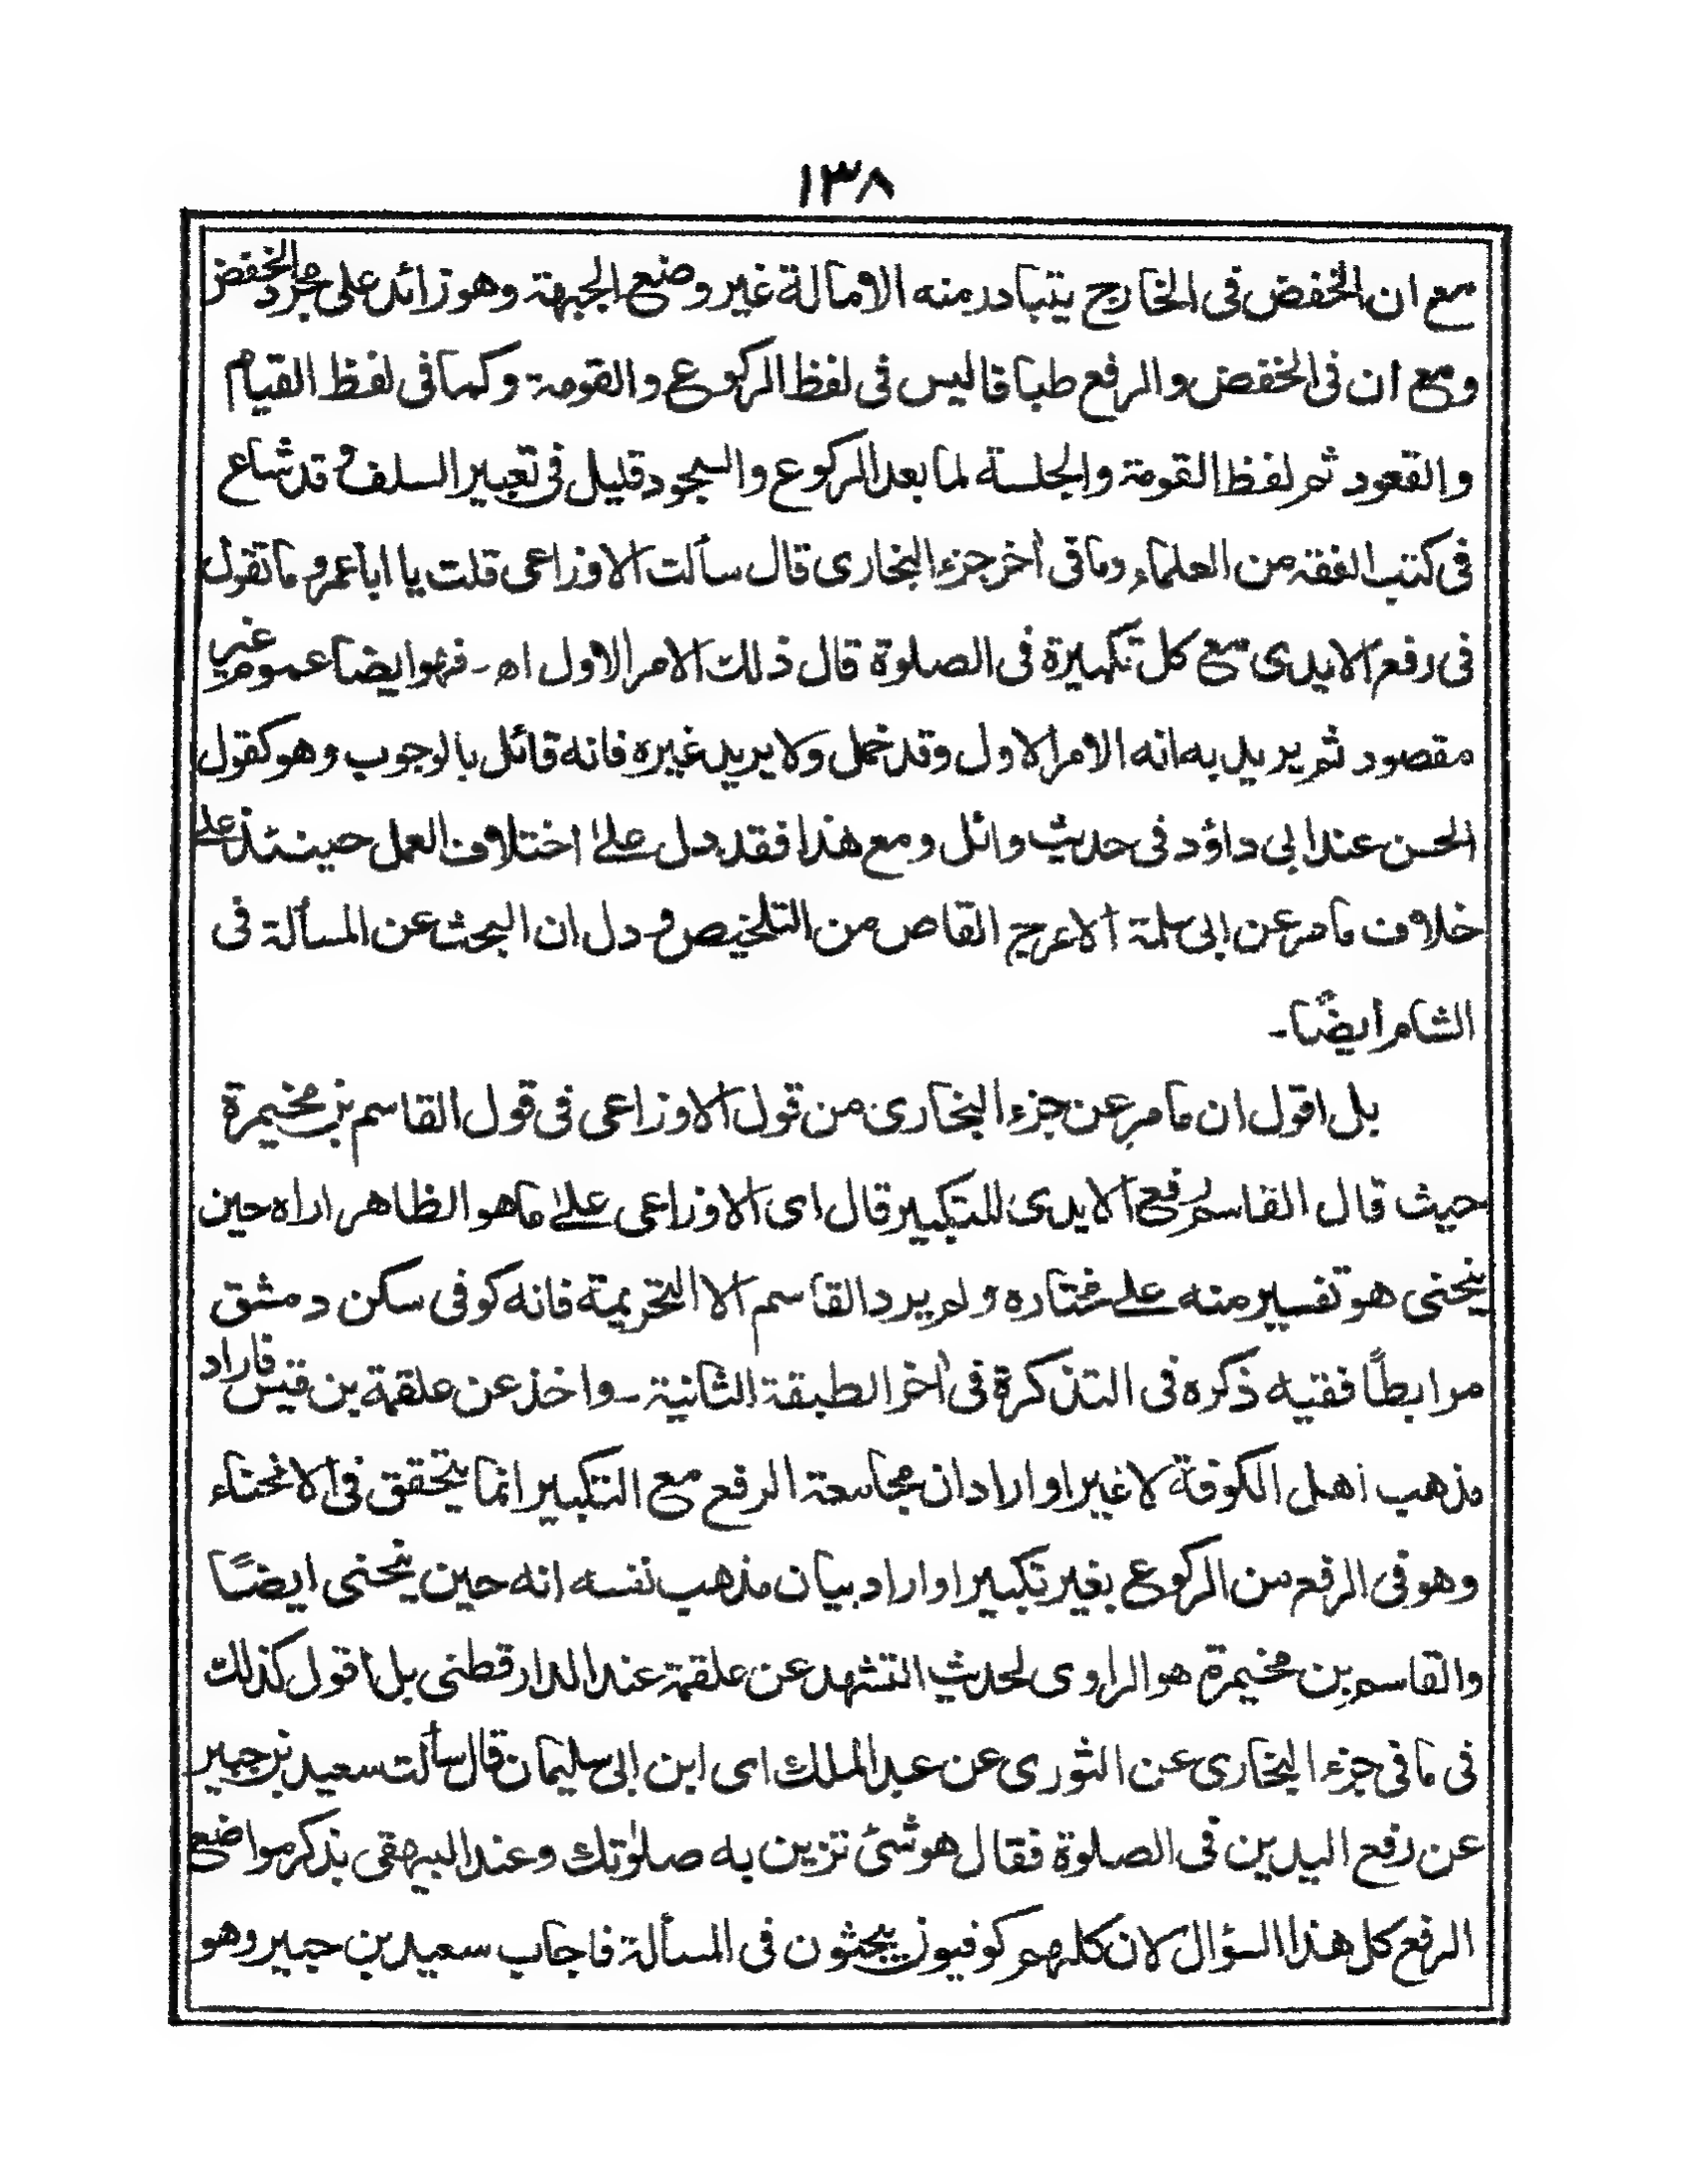 ١٣٨
مع ان الخفض فى الخارج يتبادر منه الامالة غير وضع الجبهة وهو زائد على مجرد الخفض
ومع ان فى الخفض والرفع طباقا ليس فى لفظ الركوع والقومة وكما فى لفظ القيام
والقعود ثم لفظ القومة والجلسة لما بعد الركوع والسجود قليل فى تعبير السلف وقد شاع
فى كتب الفقه من العلماء وما فى اٰخر جزء البخارى قال سألت الاوزاعى قلت يا ابا عمرو ما تقول
فى رفع الايدى مع كل تكبيرة فى الصلوة قال ذلك الامر الاول اه - فهو ايضا عموم غير
مقصود ثم يريد به انه الامر الاول وقد خمل ولا يريد غيره فانه قائل بالوجوب وهو كقول
الحسن عند ابى داؤد فى حديث وائل ومع هذا فقد دل علىٰ اختلاف العمل حينئذ على
خلاف ما مر عن ابى سلمة الاعرج القاص من التلخيص ودل ان البحث عن المسألة فى
الشام أيضًا -
بل اقول ان ما مر عن جزء البخارى من قول الاوزاعى فى قول القاسم بن مخيمرة
حيث قال القاسم رفع الايدى للتكبير قال اى الاوزاعى علىٰ ما هو الظاهر اراه حين
ينحنى هو تفسير منه على مختاره ولم يرد القاسم الا التحريمة فانه كوفى سكن دمشق
مرابطًا فقيه ذكره فى التذكرة فى اٰخر الطبقة الثانية - واخذ عن علقمة بن قيس فاراد
مذهب اهل الكوفة لا غير او اراد ان مجامعة الرفع مع التكبير انما يتحقق فى الانحناء
وهو فى الرفع من الركوع بغير تكبير او اراد بيان مذهب نفسه انه حين ينحنى ايضًا
والقاسم بن مخيمرة هو الراوى لحديث التشهد عن علقمة عند الدارقطنى بل اقول كذلك
فى ما فى جزء البخارى عن الثورى عن عبد الملك اى ابن ابى سليمان قال سألت سعيد بن جبير
عن رفع اليدين فى الصلوة فقال هو شئ تزين به صلوٰتك وعند البيهقى بذكر مواضع
الرفع كل هذا السؤال لان كلهم كوفيون يبحثون فى المسألة فاجاب سعيد بن جبير وهو